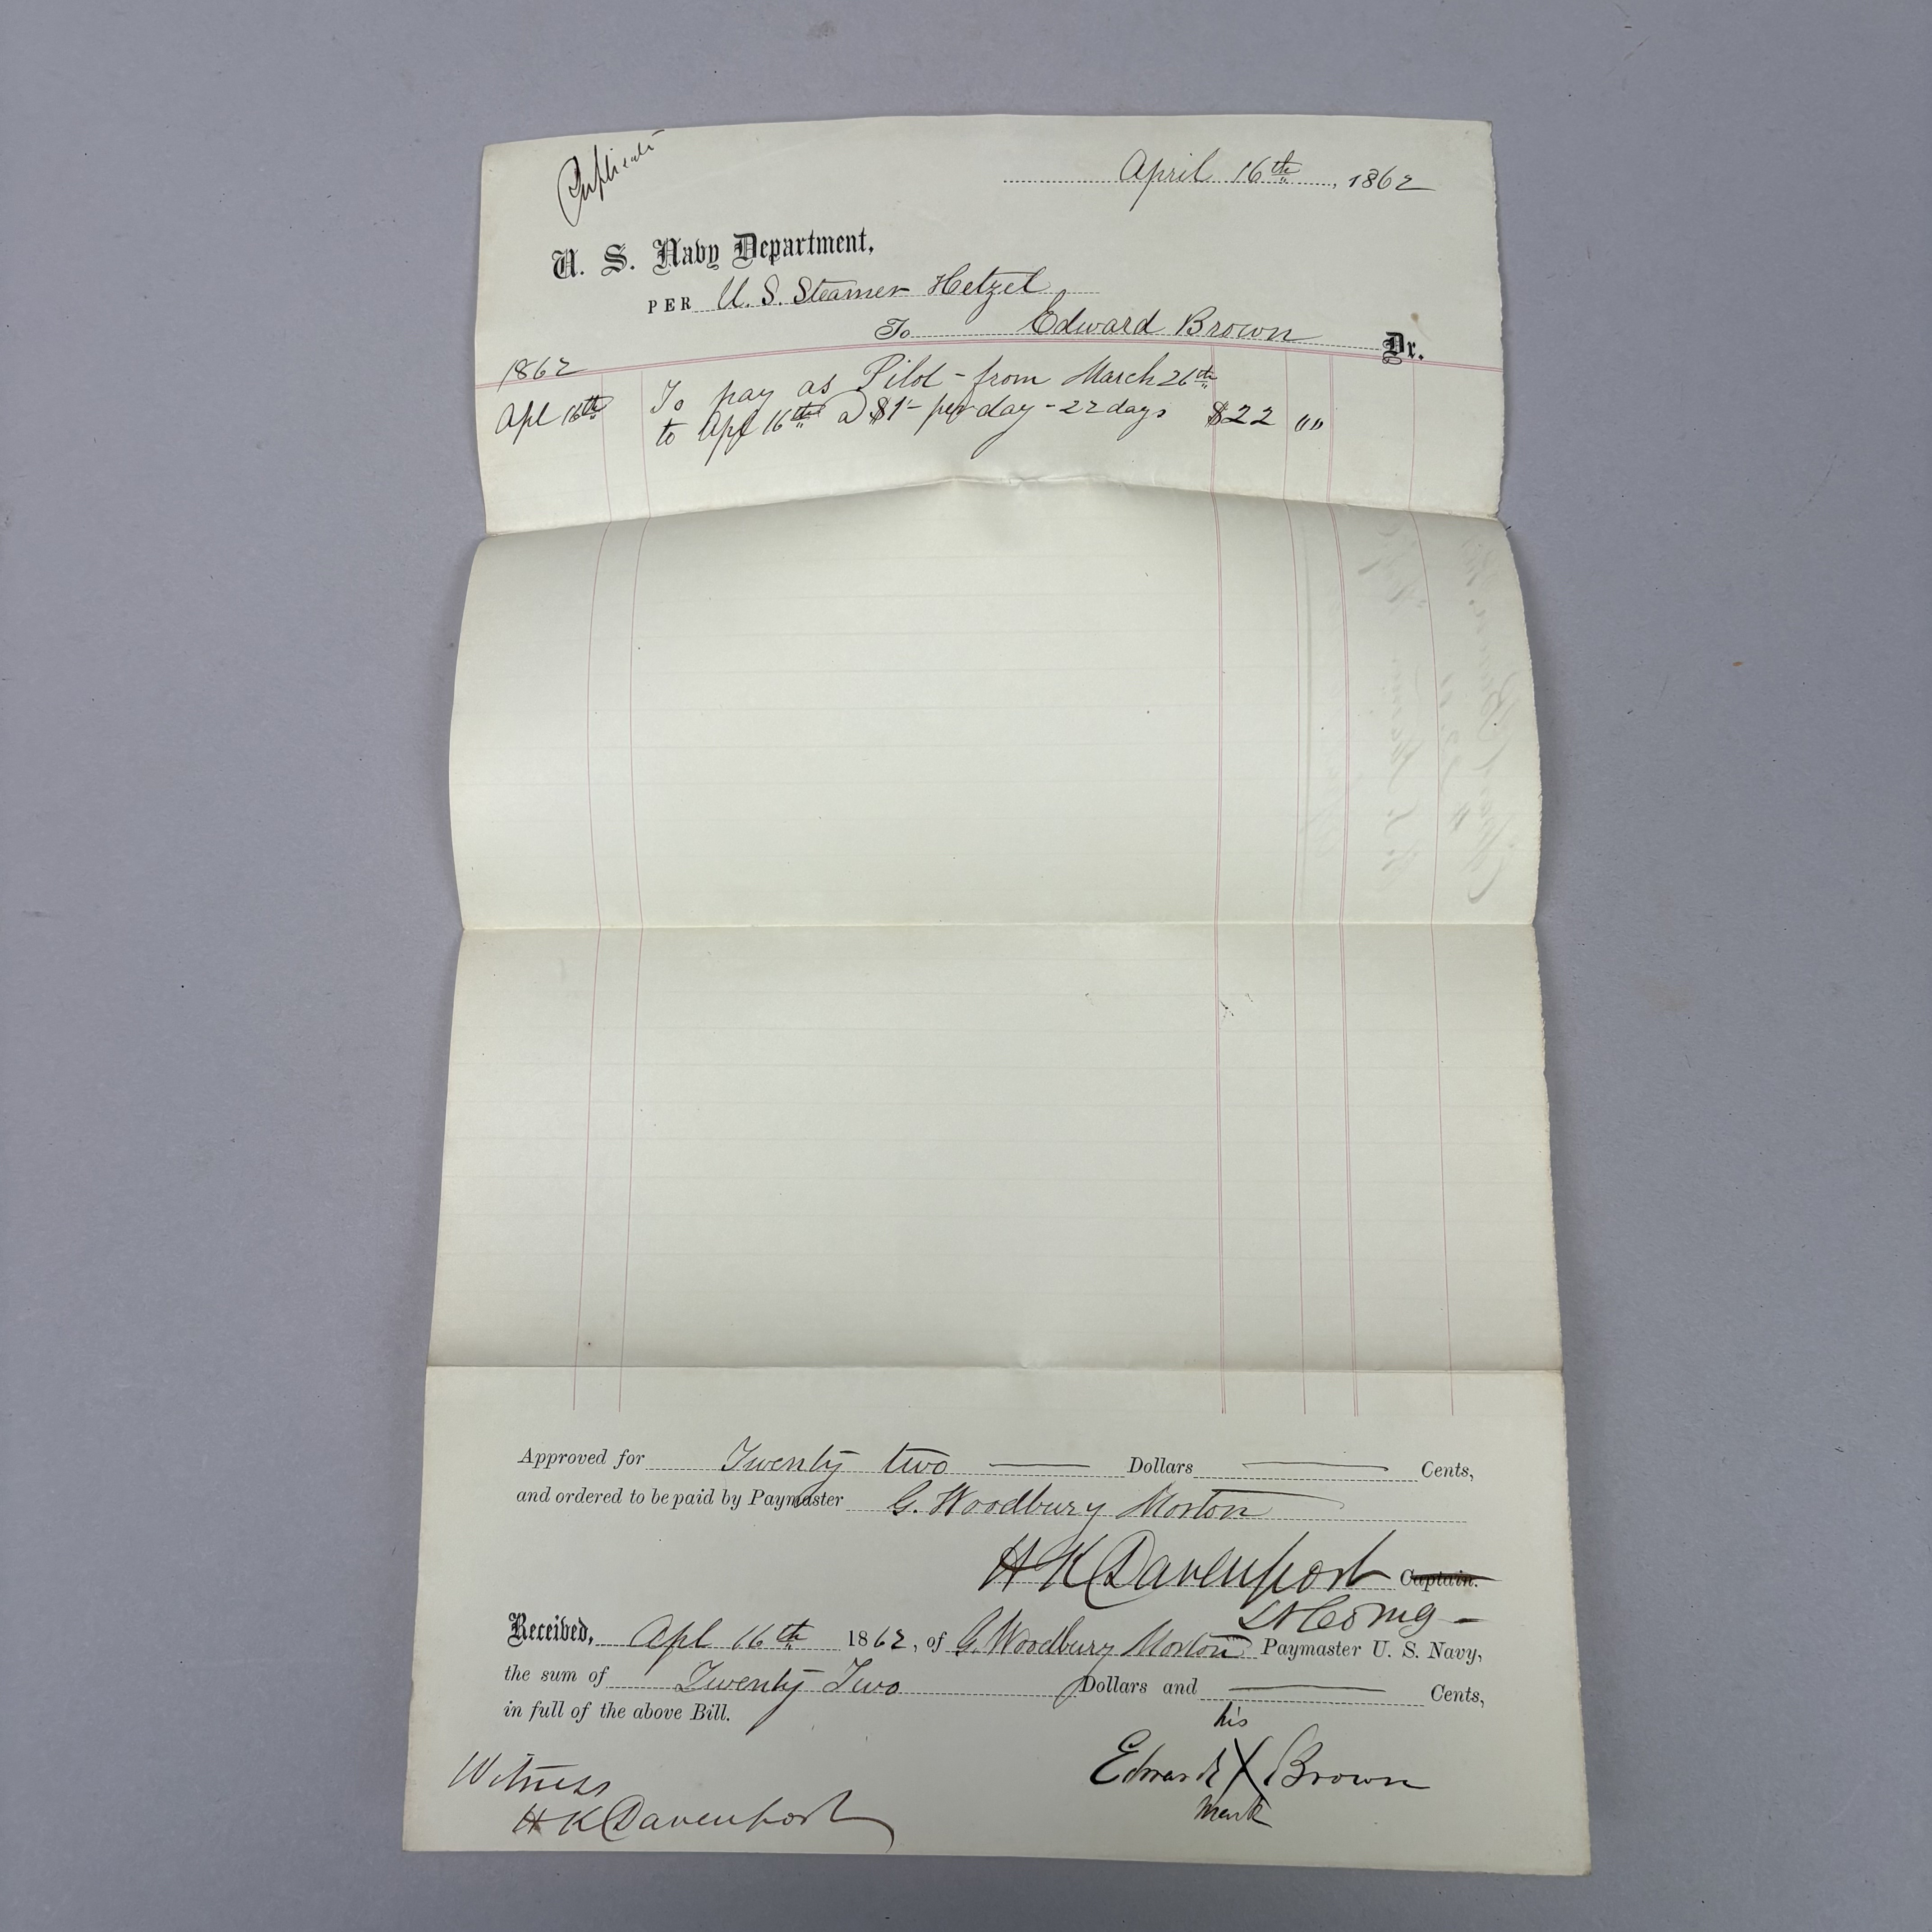 Duplicate
April 16th, 1862
U. S. Navy Department,
PER U. S. Steamer Hetzel
To Edward Brown Dr.
1862
Apl 16th To pay as Pilot - from March 26th
to Apl 16th a $1- per day - 22 days $22 "
Approved for Twenty two — Dollars — Cents,
and ordered to be paid by Paymaster G. Woodbury Morton
H K Davenport Captain.
Lt Comg -
Received, Apl 16th 1862, of G. Woodbury Morton Paymaster U. S. Navy,
the sum of Twenty Two Dollars and — Cents,
in full of the above Bill.
his
Edward X Brown
mark
Witness
H K Davenport